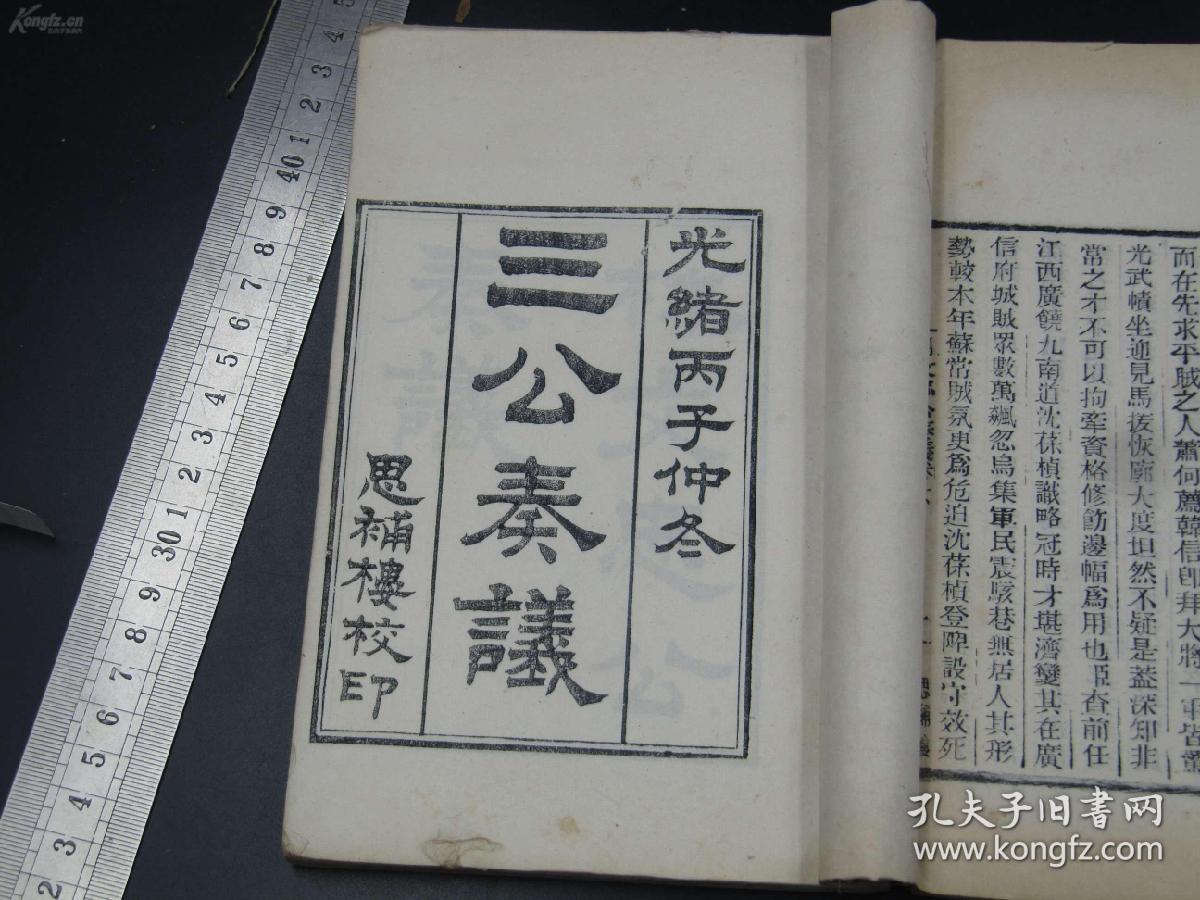 Kongfz.cn
光緒丙子仲冬
三公奏議
思補樓校印
而在先求平賊之人蕭何薦韓信卽拜大將一軍皆驚
光武幘坐迎見馬援恢廓大度坦然不疑是蓋深知非
常之才不可以拘牽資格修飭邊幅爲用也臣查前任
江西廣饒九南道沈葆楨識略冠時才堪濟變其在廣
信府城賊眾數萬飆忽烏集軍民震駭巷無居人其形
勢較本年蘇常賊氛更爲危迫沈葆楨登陴設守效死
思補樓
孔夫子旧书网
www.kongfz.com
5 4 3 2 1 40 9 8 7 6 5 4 3 2 1 30 9 8 7 6 5 4 3 2